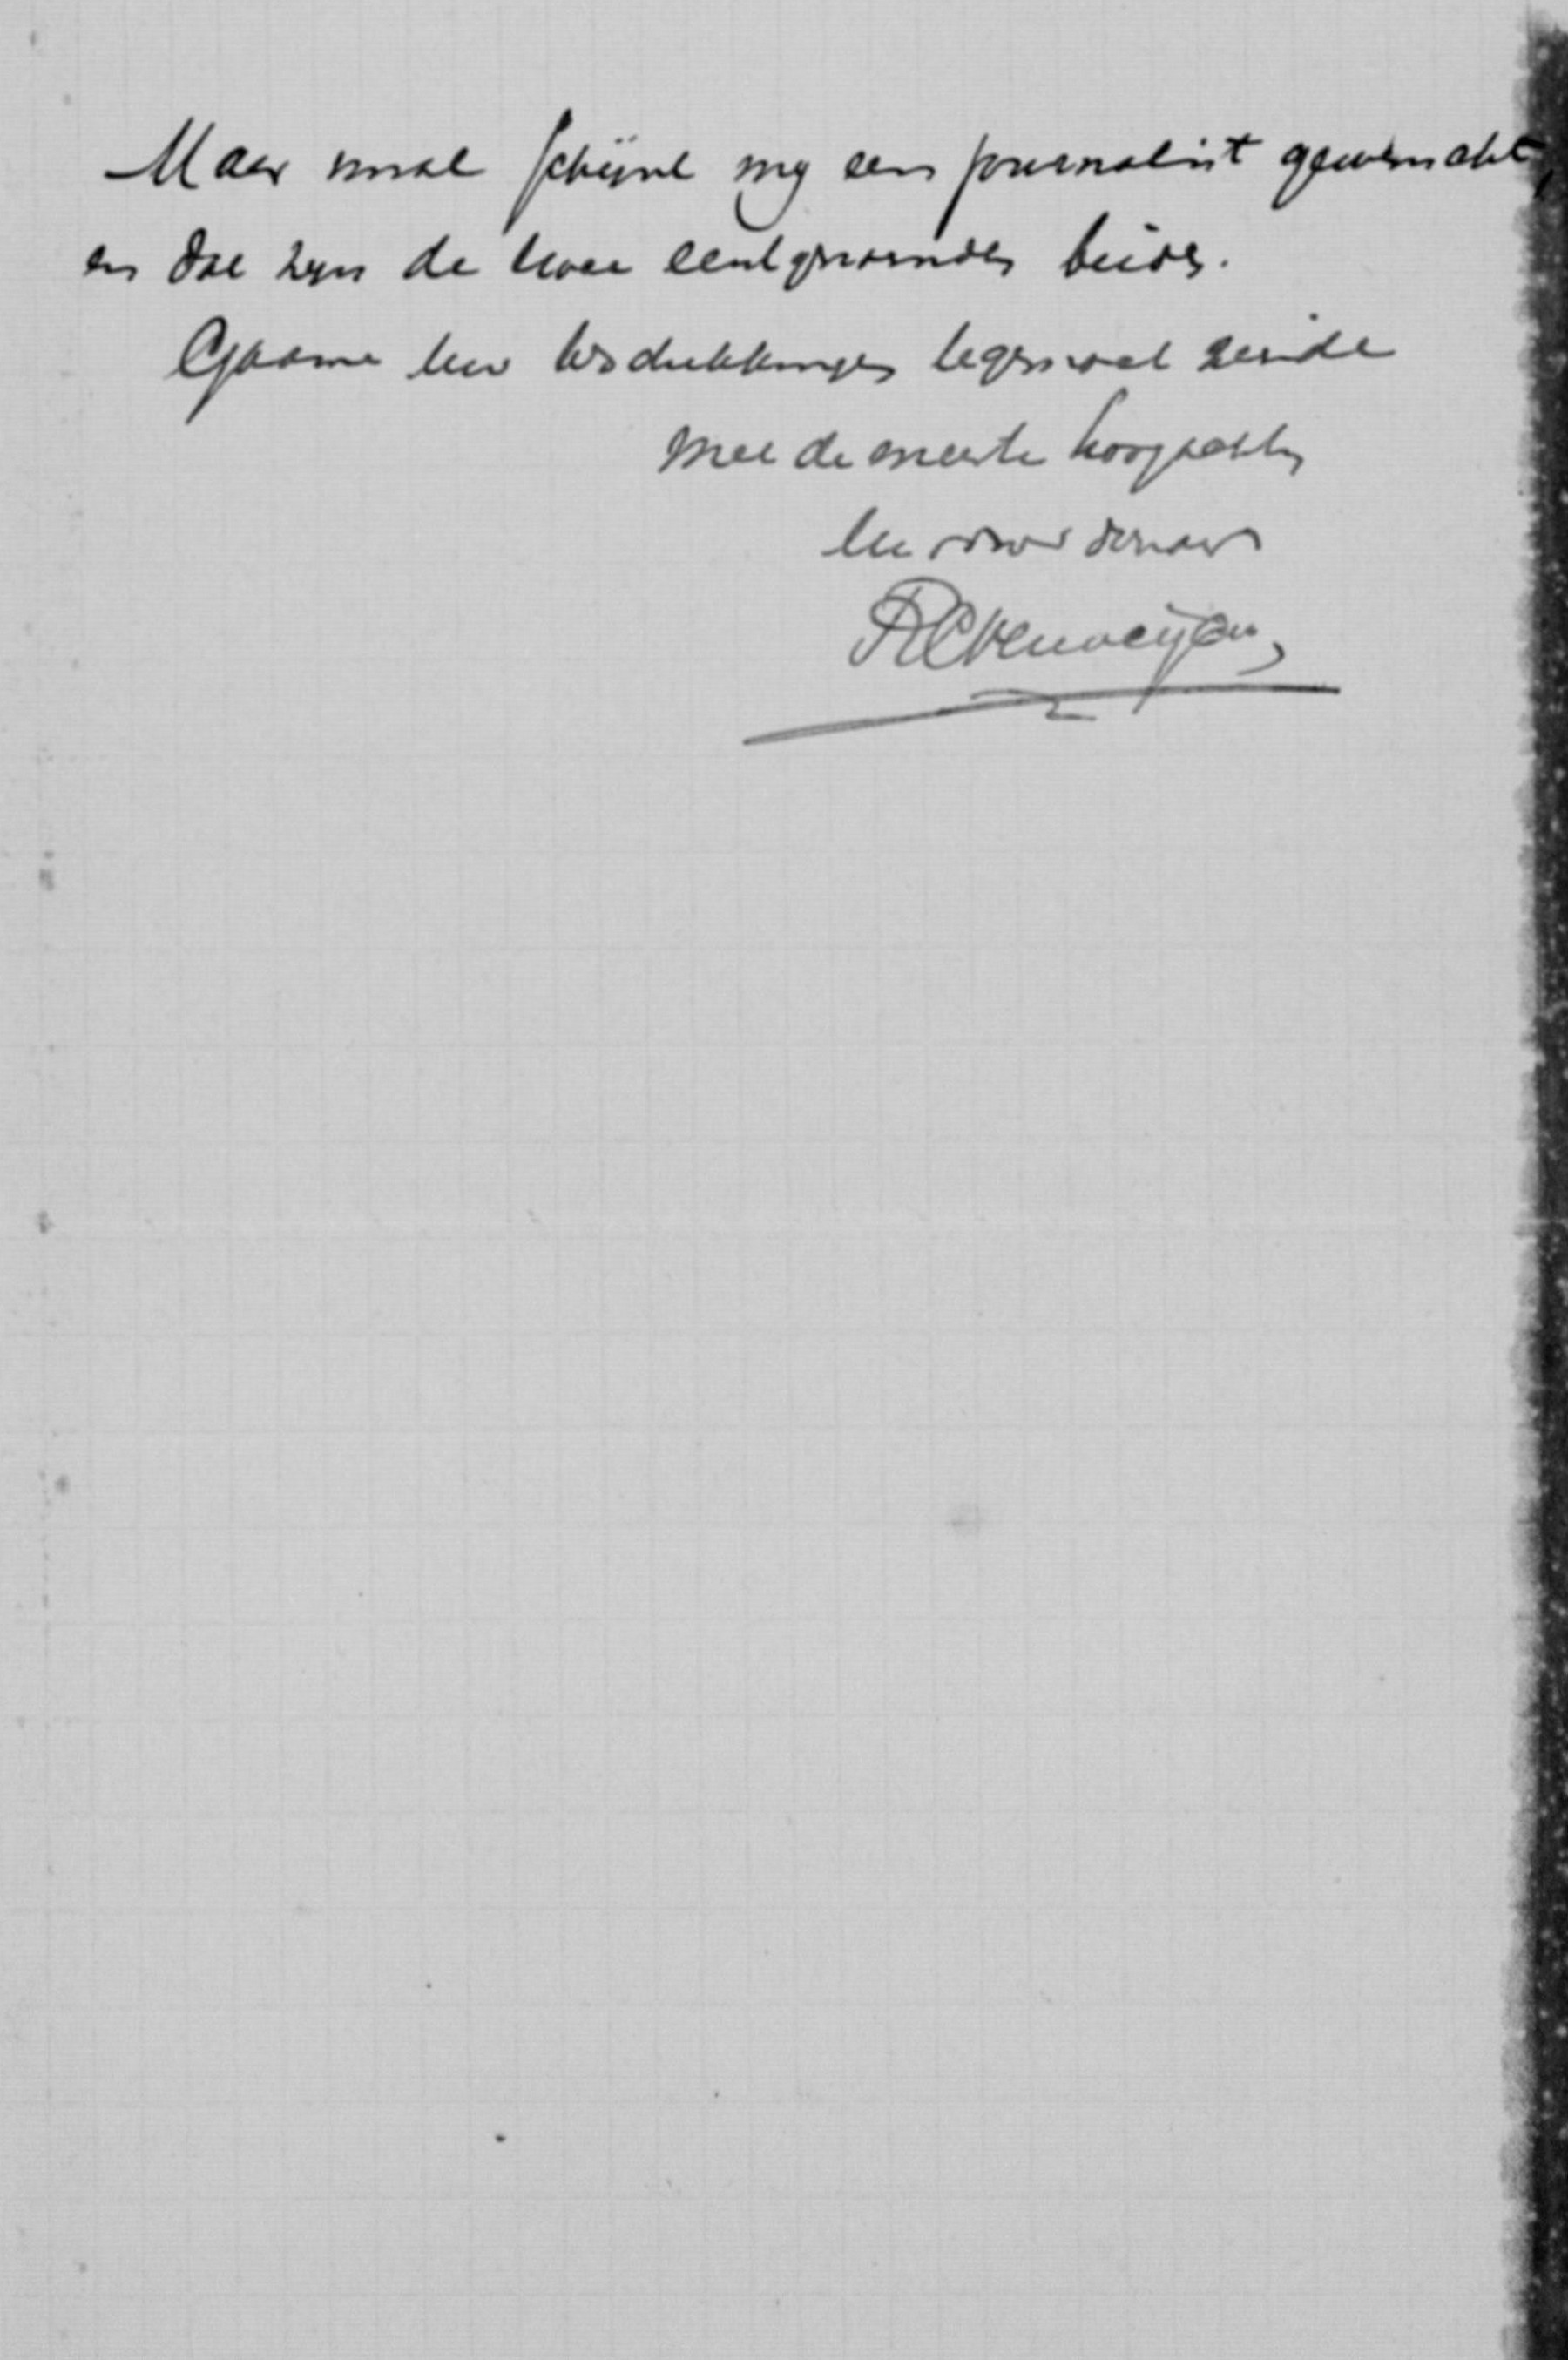 Maar wal schijnt mij een journalist gewenscht,
en dat zijn de twee eerstgenoemden beide.
Gaarne Uw beschikkingen tegemoet ziende
met de meeste hoogachting
Uw dienaar
R C Verweyen